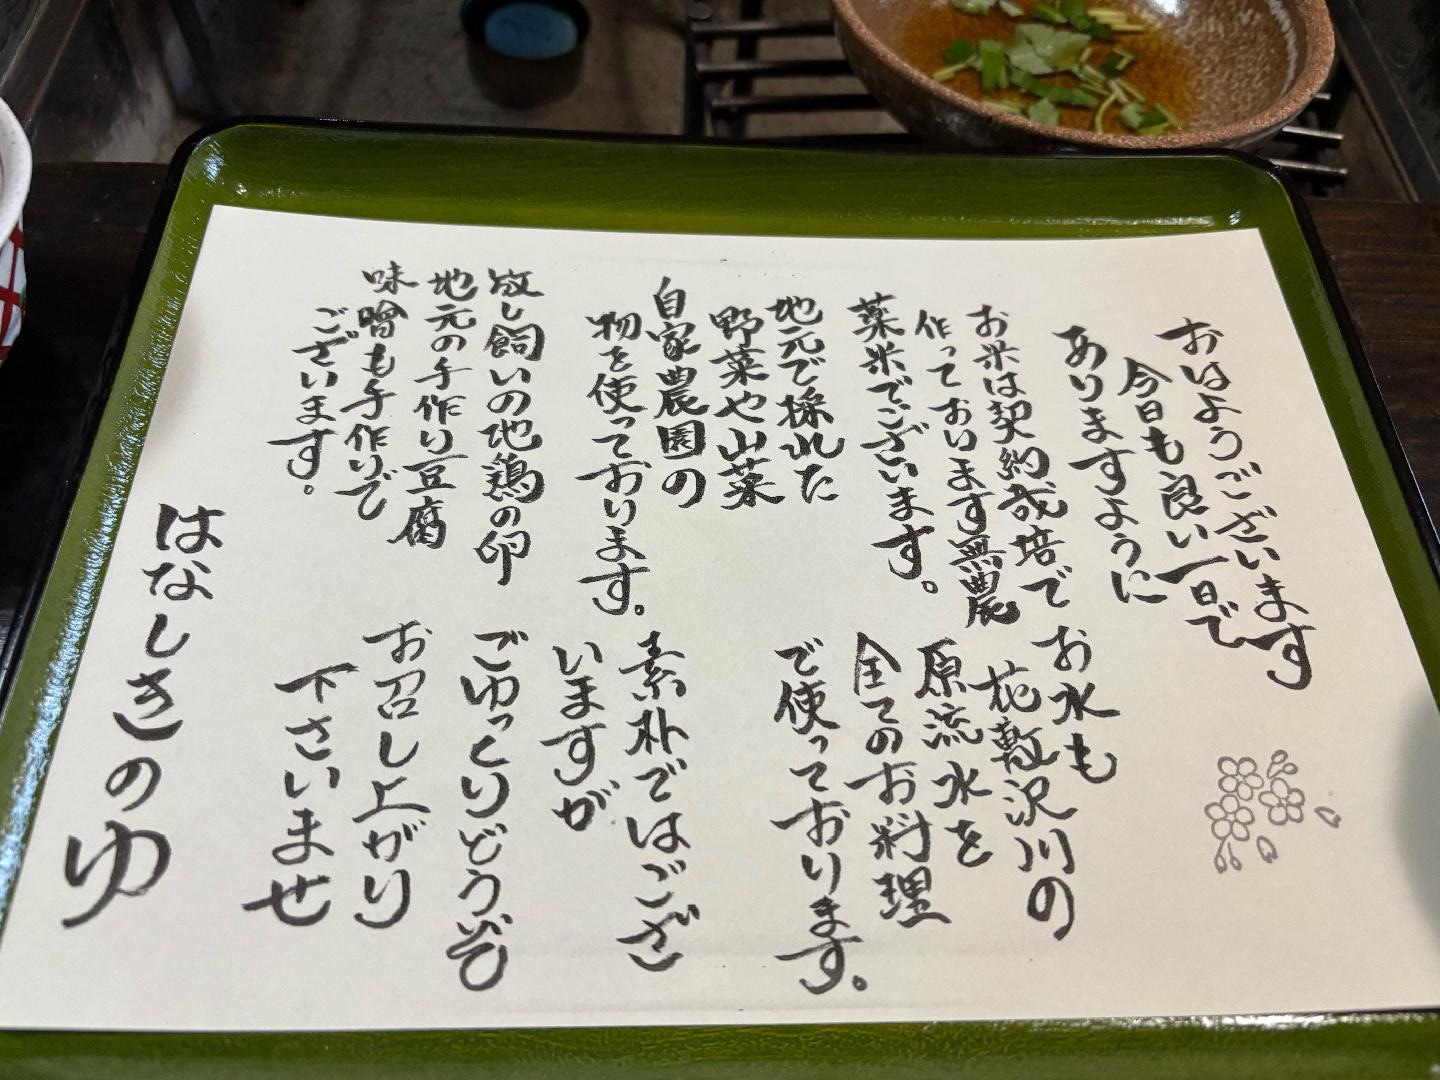 おはようございます
今日も良い一日で
ありますように
お米は契約栽培で
作っております無農
薬米でございます。
地元で採れた
野菜や山菜
自家農園の
物を使っております。
放し飼いの地鶏の卵
地元の手作り豆腐
味噌も手作りで
ございます。
お水も
花敷沢川の
原流水を
全てのお料理
で使っております。
素朴ではござ
いますが
ごゆっくりどうぞ
お召し上がり
下さいませ
はなしきのゆ